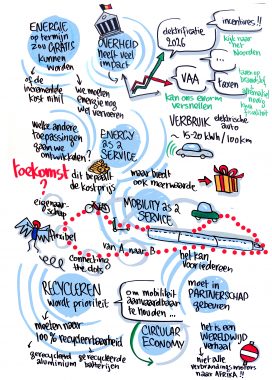 ENERGIE
op termijn
zou GRATIS
kunnen
worden
of de
incrementele
kost nihil
we moeten
energie nog
wel vervoeren
OVERHEID
heeft veel
impact
elektrificatie
2026
incentives!!
kijk naar
het
Noorden
...
VAA
taxen
taxen op
brandstof
nodig
fiscaliteit
kan ons enorm
versnellen
VERBRUIK elektrische
auto
~ 15-20 kWh / 100km
welke andere
toepassingen
gaan we
ontwikkelen?
ENERGY
as a
SERVICE
toekomst
?
dit bepaalt
de kostprijs
maar biedt
ook meerwaarde
eigenaar-
schap
flexibel
MOBILITY as a
SERVICE
van A naar B
connecting
the dots
het kan
voordeliger zijn
RECYCLEREN
wordt prioriteit
om mobiliteit
aanvaardbaar
te houden ...
moet in
PARTNERSCHAP
gebeuren
moeten naar
100% recycleerbaarheid
gerecycleerd
aluminium
gerecycleerde
batterijen
CIRCULAR
ECONOMY
het is een
WERELDWIJD
verhaal
niet alle
verbrandingsmotors
naar Afrika!!